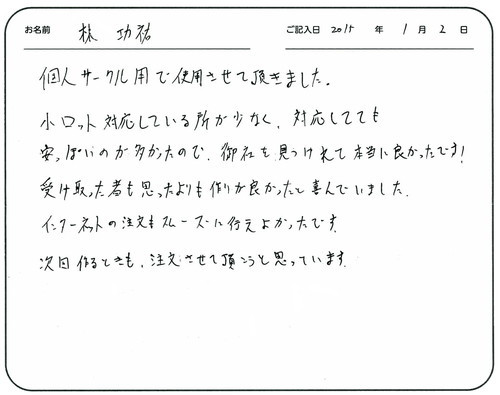 お名前 林 功祐 ご記入日 2015 年 1 月 2 日
個人サークル用で使用させて頂きました。
小ロット対応している所が少なく、対応してても
安っぽいのが多かったので、御社を見つけれて本当に良かったです!
受け取った者も思ったよりも作りが良かったと喜んでいました。
インターネットの注文もスムーズに行えよかったです。
次回作るときも、注文させて頂こうと思っています。